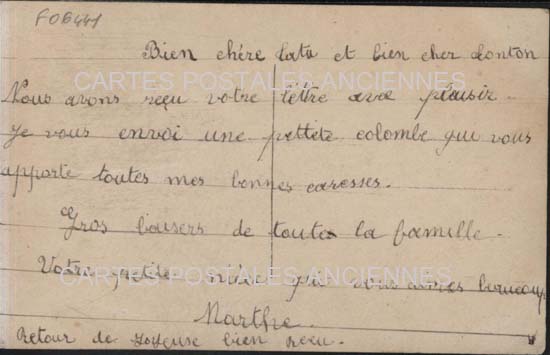 F06441
Bien chère tata et bien cher tonton
CARTES POSTALES ANCIENNES
Nous avons reçu votre lettre avec plaisir
je vous envoi une pettite colombe qui vous
apporte toutes mes bonnes caresses.
Gros baisers de toute la famille.
Votre petite nièce qui vous aimes beaucoup
CARTES POSTALES ANCIENNES
Marthe.
Retour de Joyeuse bien reçu.